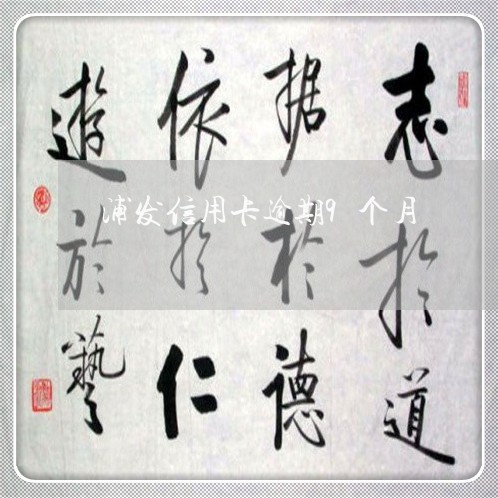 志於道
据於德
依於仁
遊於藝
浦发信用卡逾期9个月